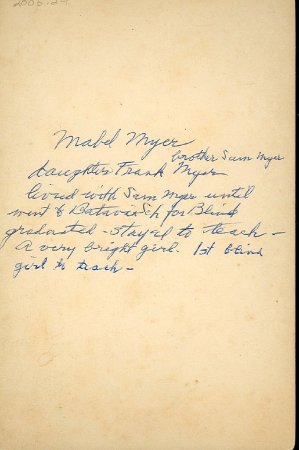 2006.24
Mabel Myer
brother Sam Myer
daughter Frank Myer
lived with Sam Myer until
went to Batavia Sch for Blind
graduated - stayed to teach -
A very bright girl. 1st blind
girl to teach -